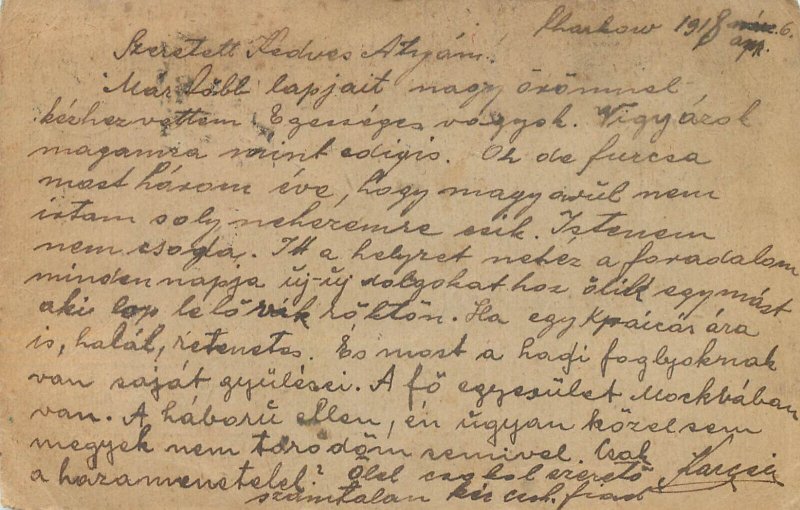 Kharkow 1918 márc. 6.
apr.
Szeretett Kedves Atyám!
Már több lapjait nagy örömmel
kézhez vettem Egésséges vagyok. Vigyázok
magamra mint edigis. Oh de furcsa
most három éve, hogy magyarul nem
irtam s oly neheremre esik. Istenem
nem csoda. Itt a helyzet nehéz a foradalom
minden napja új-új dolgokat hoz ölik egymást
aki lop lelövik röktön. Ha egy kpaicár ára
is, halál, retenetes. És most a hadi foglyoknak
van saját gyülései. A fö egyesület Mockbában
van. A háború ellen, én ugyan közelsem
megyek nem törödöm semivel. Csak
a hazamenetelel? Ölel csokol szeretö
számtalan fiad